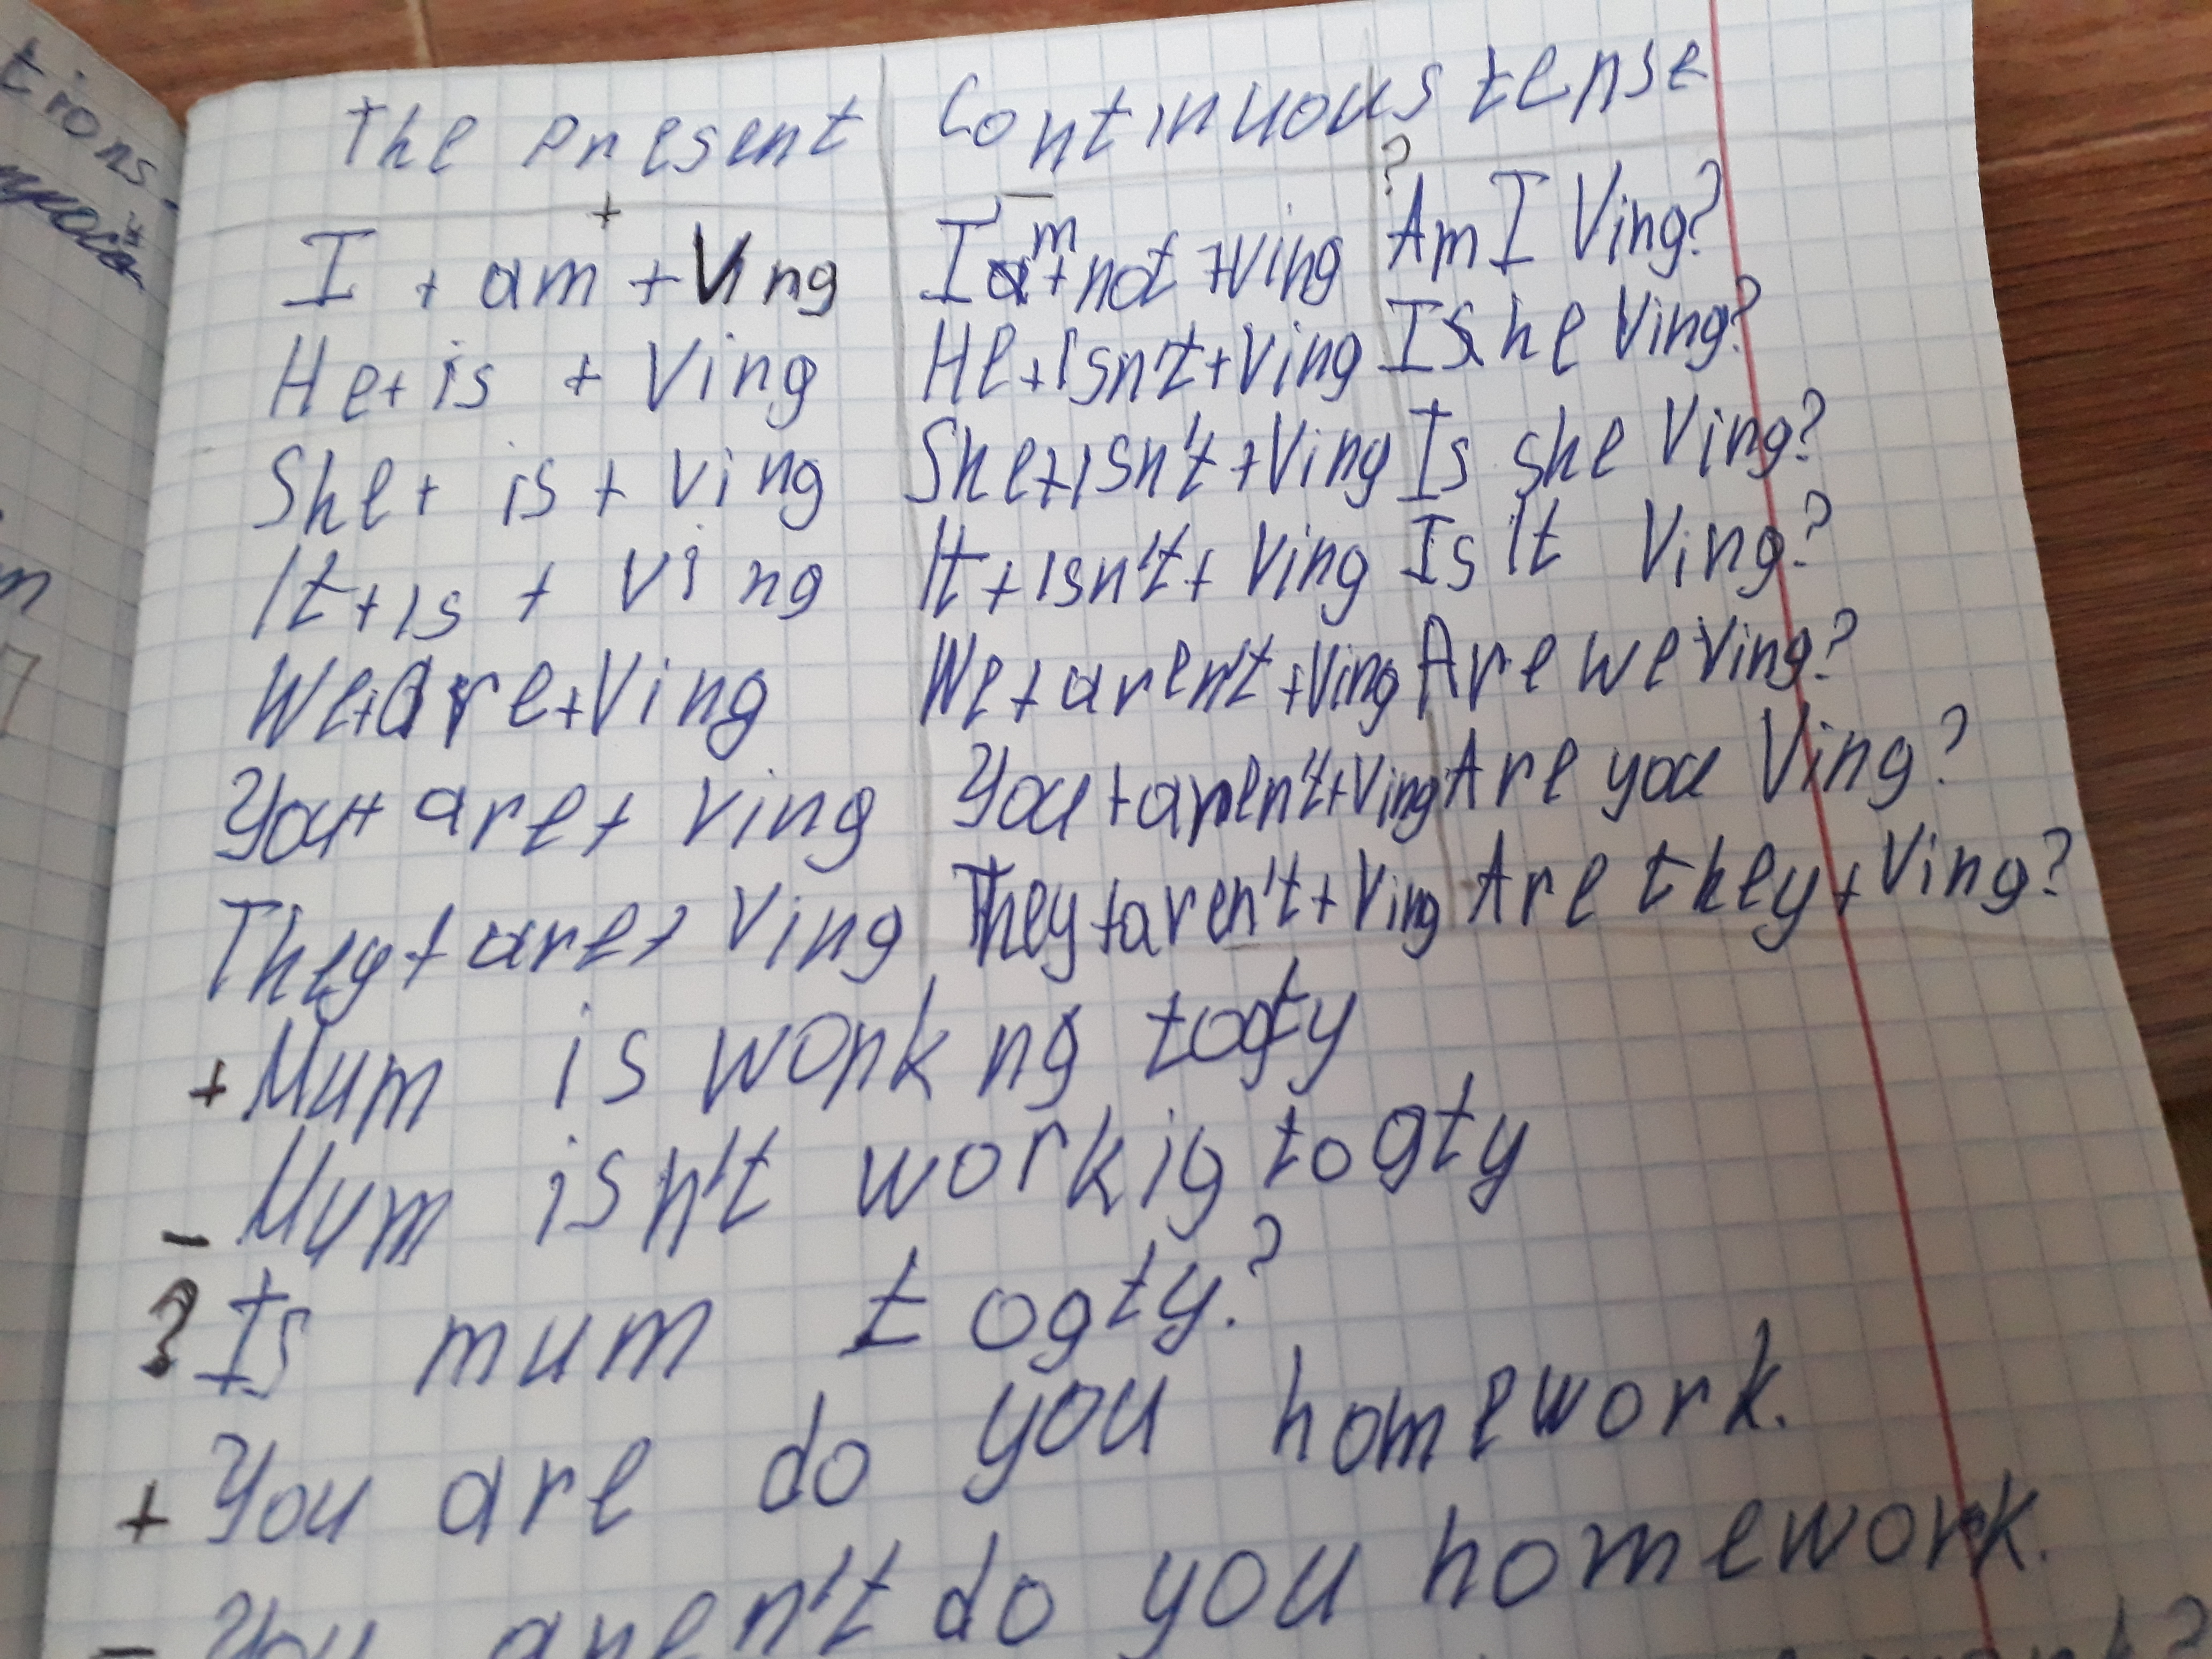 tions
The Present Continuous tense
+ - ?
I + am + Ving I am + not + Ving Am I Ving?
He + is + Ving He + isn't + Ving Is he Ving?
She + is + Ving She + isn't + Ving Is she Ving?
It + is + Ving It + isn't + Ving Is It Ving?
We + are + Ving We + aren't + Ving Are we Ving?
You + are + Ving You + aren't + Ving Are you Ving?
They + are + Ving They + aren't + Ving Are they + Ving?
+ Mum is work ng togty
- Mum isn't workig togty
? Is mum togty.?
+ You are do you homework.
- You aren't do you homework.